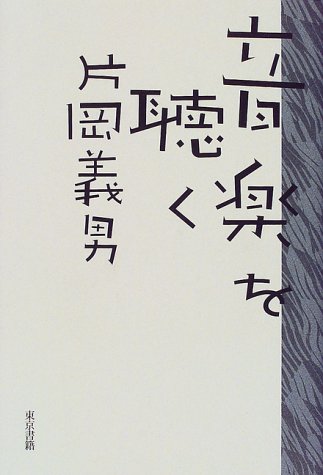 音楽を
聴く
片岡義男
東京書籍